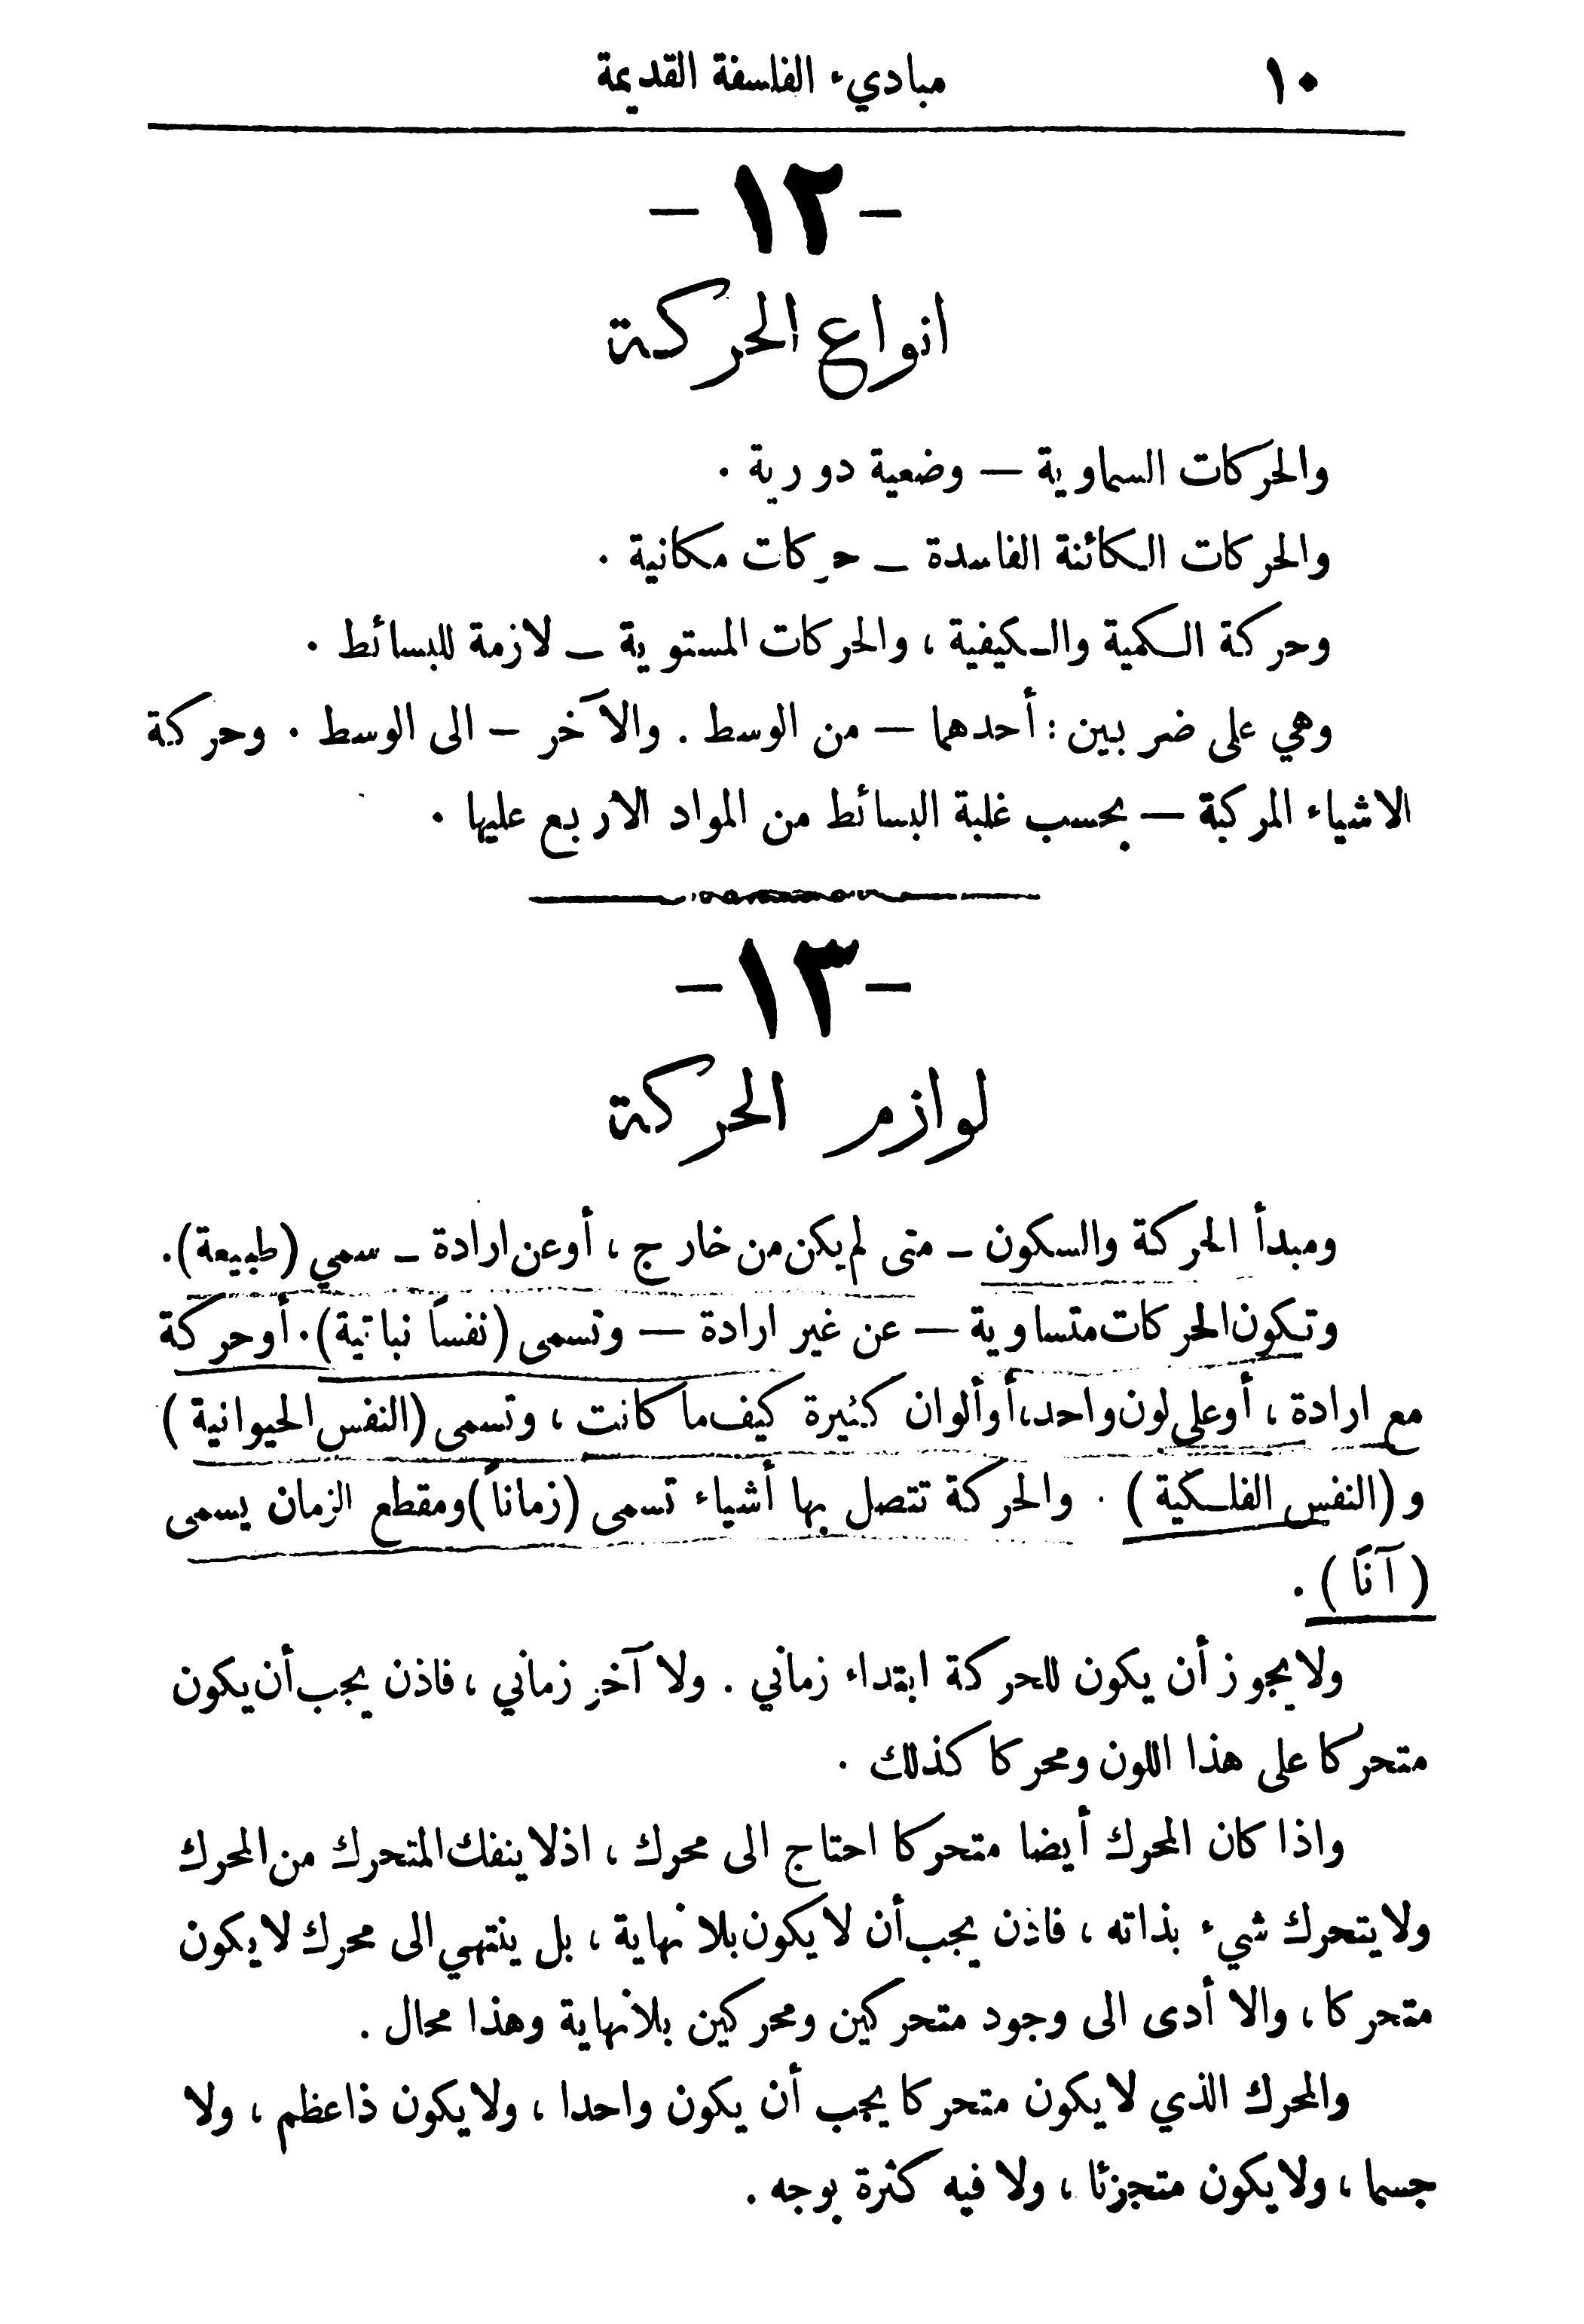 ١٠ مبادىء الفلسفة القديمة
- ١٢ -
انواع الحركة
والحركات السماوية — وضعية دورية .
والحركات الكائنة الفاسدة — حركات مكانية .
وحركة الكمية والكيفية ، والحركات المستوية — لازمة للبسائط .
وهي على ضربين : أحدهما — من الوسط . والآخر — الى الوسط . وحركة
الاشياء المركبة — بحسب غلبة البسائط من المواد الاربع عليها .
- ١٣ -
لوازم الحركة
ومبدأ الحركة والسكون — متى لم يكن من خارج ، أو عن ارادة — سمي (طبيعة) .
وتكون الحركات متساوية — عن غير ارادة — وتسمى (نفساً نباتية) . أو حركة
مع ارادة ، أو على لون واحد ، أو ألوان كثيرة كيف ما كانت ، وتسمى (النفس الحيوانية )
و (النفس الفلكية ) . والحركة تتصل بها أشياء تسمى (زماناً) ومقطع الزمان يسمى
( آناً ) .
ولا يجوز أن يكون للحركة ابتداء زماني . ولا آخر زماني ، فاذن يجب أن يكون
متحركا على هذا اللون ومحركا كذلك .
واذا كان المحرك أيضا متحركا احتاج الى محرك ، اذ لا ينفك المتحرك من المحرك
ولا يتحرك شيء بذاته ، فاذن يجب أن لا يكون بلا نهاية ، بل ينتهي الى محرك لا يكون
متحركا ، والا أدى الى وجود متحركين ومحركين بلا نهاية وهذا محال .
والمحرك الذي لا يكون متحركا يجب أن يكون واحدا ، ولا يكون ذا عظم ، ولا
جسما ، ولا يكون متجزئا ، ولا فيه كثرة بوجه .